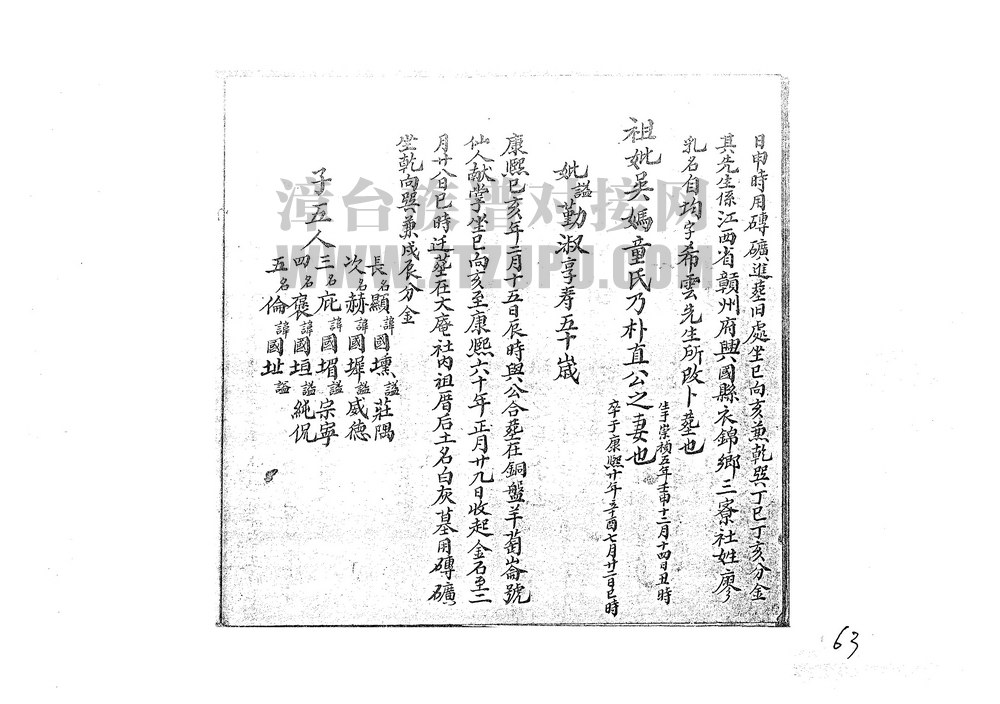 日申時用磚礦進塟旧處坐巳向亥兼乾巽丁巳丁亥分金
其先生係江西省贛州府興國縣衣錦鄉三寮社姓廖
乳名自均字希雲先生所改卜塟也
祖妣吳媽童氏乃朴直公之妻也
生于崇禎五年壬申十二月十四日丑時
卒于康熙廿年辛酉七月廿二日巳時
妣謚勤淑享寿五十歲
康熙己亥年二月十五日辰時與公合塟在銅盤羊萄崙號
仙人献掌坐巳向亥至康熙六十年正月廿九日收起金石至三
月廿八日巳時迁塟在大庵社內祖厝后土名白灰墓用磚礦
坐乾向巽兼戌辰分金
子五人
長名顯諱國壎謚莊隅
次名赫諱國墀謚威德
三名庇諱國堳謚宗寧
四名褒諱國垣謚純侃
五名倫諱國址謚
漳台族谱对接网
WWW.ZTZUPU.COM
63